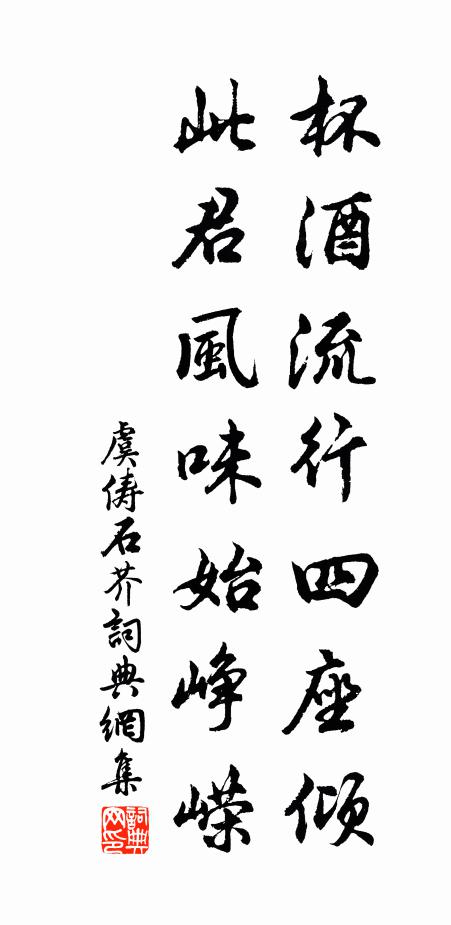 杯酒流行四座傾
此君風味始崢嶸
虞儔石芥詞典網集
詞典网印